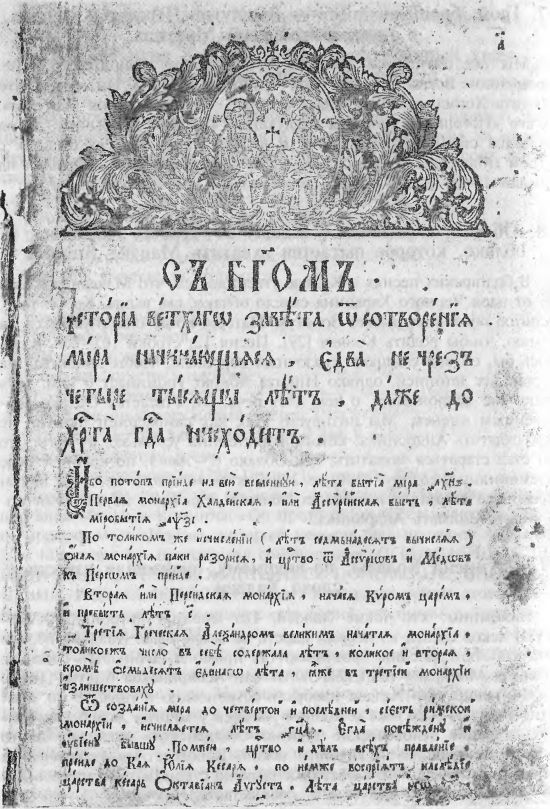 а҃
СЪ БГ҃ОМЪ.
Исто́рїа ве́тхагѡ завѣ́та ѿ сотворе́нїѧ
мі́ра начина́ющаѧсѧ, є҆два̀ не чрезъ
четы́ре ты́сѧщы лѣ́тъ, да́же до
хрⷭ҇та̀ гдⷭ҇а нисхо́дитъ.
И҆́бо пото́пъ прїи́де на всѝ вселе́ннꙋи, лѣ́та бытїѧ̀ мі́ра ҂ахн҃ѕ.
Пе́рваѧ мона́рхїа Халде́йскаѧ, и҆лѝ А҆ссѷрі́йскаѧ бы́сть, лѣ́та
міробытїѧ̀
По толи́комъ же и҆счисле́нїи (лѣ́тъ седмьна́десѧть вычислѧ́ѧ)
ѻ҆́наѧ мона́рхїа па́ки разори́сѧ, и҆ црⷭ҇тво ѿ А҆ссѷрі́ѡвъ и҆ Ми́дѡвъ
къ Пе́рсѡмъ прїи́де.
Втора́ѧ и҆лѝ Перси́дскаѧ мона́рхїѧ, нача́сѧ Кѵ́ромъ царе́мъ,
и҆ пребы́сть лѣ́тъ с҃.
Тре́тїѧ Гре́ческаѧ А҆леѯа́ндромъ вели́кимъ нача́таѧ мона́рхїа,
толи́коежъ число̀ въ себѣ̀ содержа́ла лѣ́тъ, коли́кое и҆ втора́ѧ,
кромѣ̀ ѻ҆семьдесѧ́тъ є҆ди́нагѡ лѣ́та, ꙗ҆̀же въ тре́тїей мона́рхїи
и҆зли́шествовахꙋ.
Ѿ созда́нїѧ мі́ра до четве́ртой и҆ послѣ́дней, сїе́сть ри́мской
мона́рхїи, и҆счислѧ́етсѧ лѣ́тъ ҂гц҃а. Є҆гда̀ побѣжде́нꙋ и҆
ᲂу҆бїе́нꙋ бы́вшꙋ Помпе́ю, црⷭ҇тво и҆ дѣ́лъ всѣ́хъ правле́нїе,
прїи́де до Ка́ѧ Ю҆́лїѧ Ке́сарѧ, по не́мже воспрїѧ́тъ наслѣ́дїе
ца́рства ке́сарь Ѻ҆ктавїа́нъ А҆́ѵгꙋстъ. Лѣ́та ца́рства